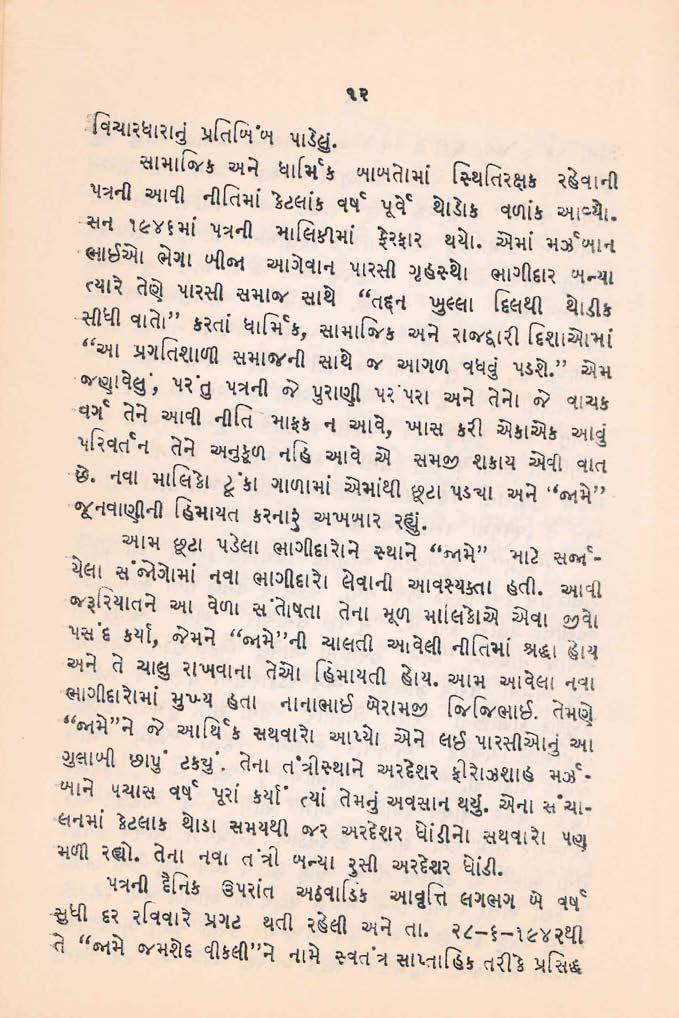 ૧૨
વિચારધારાનું પ્રતિબિંબ પાડેલું.
સામાજિક અને ધાર્મિક બાબતોમાં સ્થિતિરક્ષક રહેવાની
પત્રની આવી નીતિમાં કેટલાંક વર્ષ પૂર્વે થોડોક વળાંક આવ્યો.
સન ૧૯૪૬માં પત્રની માલિકીમાં ફેરફાર થયો. એમાં મર્ઝબાન
ભાઈઓ ભેગા બીજા આગેવાન પારસી ગૃહસ્થો ભાગીદાર બન્યા
ત્યારે તેણે પારસી સમાજ સાથે “તદ્દન ખુલ્લા દિલથી થોડીક
સીધી વાતો” કરતાં ધાર્મિક, સામાજિક અને રાજદ્વારી દિશાઓમાં
“આ પ્રગતિશાળી સમાજની સાથે જ આગળ વધવું પડશે.” એમ
જણાવેલું, પરંતુ પત્રની જે પુરાણી પરંપરા અને તેનો જે વાચક
વર્ગ તેને આવી નીતિ માફક ન આવે, ખાસ કરી એકાએક આવું
પરિવર્તન તેને અનુકૂળ નહિ આવે એ સમજી શકાય એવી વાત
છે. નવા માલિકો ટૂંકા ગાળામાં એમાંથી છૂટા પડ્યા અને “જામે”
જૂનવાણીની હિમાયત કરનારું અખબાર રહ્યું.
આમ છૂટા પડેલા ભાગીદારોને સ્થાને “જામે” માટે સર્જા-
યેલા સંજોગોમાં નવા ભાગીદારો લેવાની આવશ્યક્તા હતી. આવી
જરૂરિયાતને આ વેળા સંતોષતા તેના મૂળ માલિકોએ એવા જીવો
પસંદ કર્યા, જેમને “જામે”ની ચાલતી આવેલી નીતિમાં શ્રદ્ધા હોય
અને તે ચાલુ રાખવાના તેઓ હિમાયતી હોય. આમ આવેલા નવા
ભાગીદારોમાં મુખ્ય હતા નાનાભાઈ બેરામજી જિજિભાઈ. તેમણે
“જામે”ને જે આર્થિક સથવારો આપ્યો એને લઈ પારસીઓનું આ
ગુલાબી છાપું ટકયું. તેના તંત્રીસ્થાને અરદેશર ફીરોઝશાહ મર્ઝ-
બાને પચાસ વર્ષ પૂરાં કર્યાં ત્યાં તેમનું અવસાન થયું. એના સંચા-
લનમાં કેટલાક થોડા સમયથી જર અરદેશર ધોંડીનો સથવારો પણ
મળી રહ્યો. તેના નવા તંત્રી બન્યા રુસી અરદેશર ધોંડી.
પત્રની દૈનિક ઉપરાંત અઠવાડિક આવૃત્તિ લગભગ બે વર્ષ
સુધી દર રવિવારે પ્રગટ થતી રહેલી અને તા. ૨૮–૬–૧૯૪૨થી
તે “જામે જમશેદ વીકલી”ને નામે સ્વતંત્ર સાપ્તાહિક તરીકે પ્રસિદ્ધ